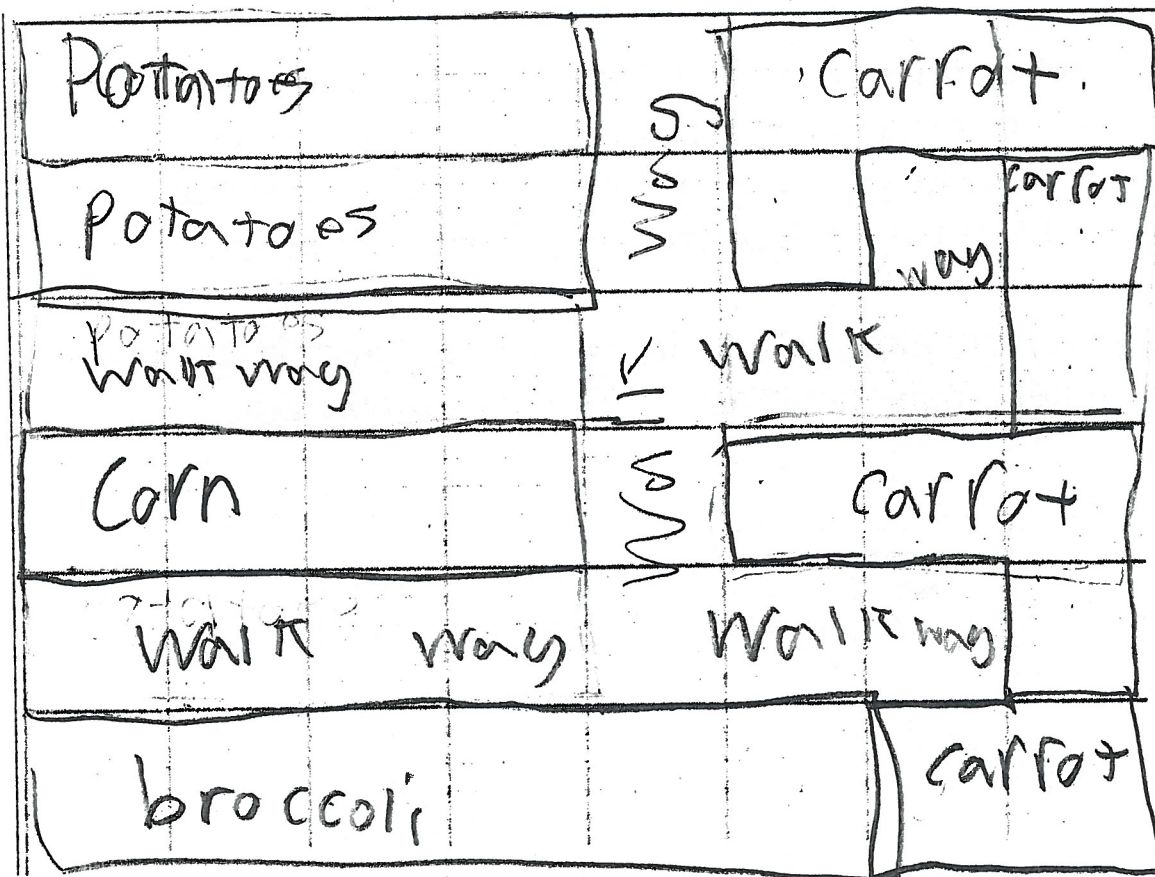 Potatoes
Carrot
Potatoes
way
carrot
way
potatoes
walkway
walk
walk
Corn
Carrot
walk way
walkway
broccoli
carrot